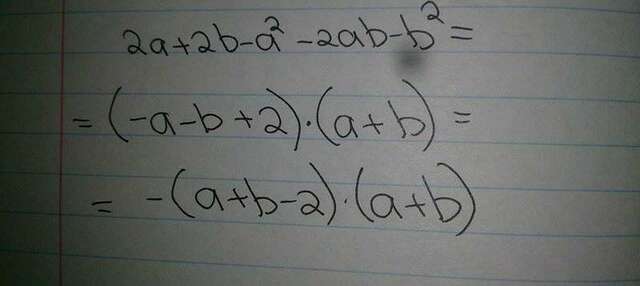 2a+2b-a²-2ab-b²=
=(-a-b+2)·(a+b)=
= -(a+b-2)·(a+b)